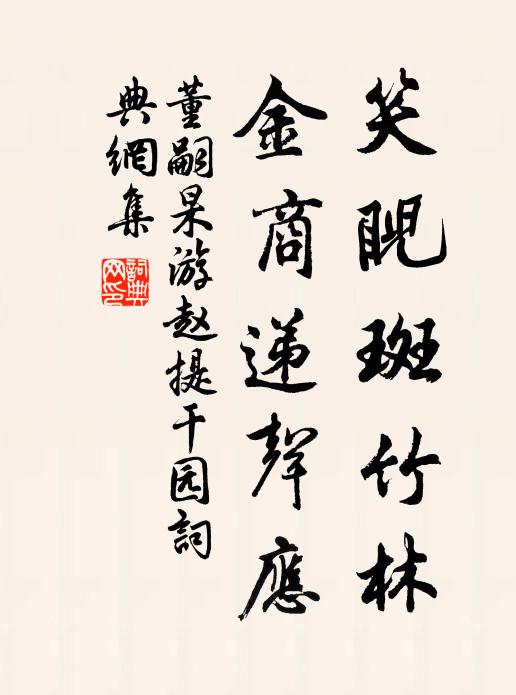 笑睨斑竹林
金商递聲應
董嗣杲游赵提干园詞
典網集
詞典网印